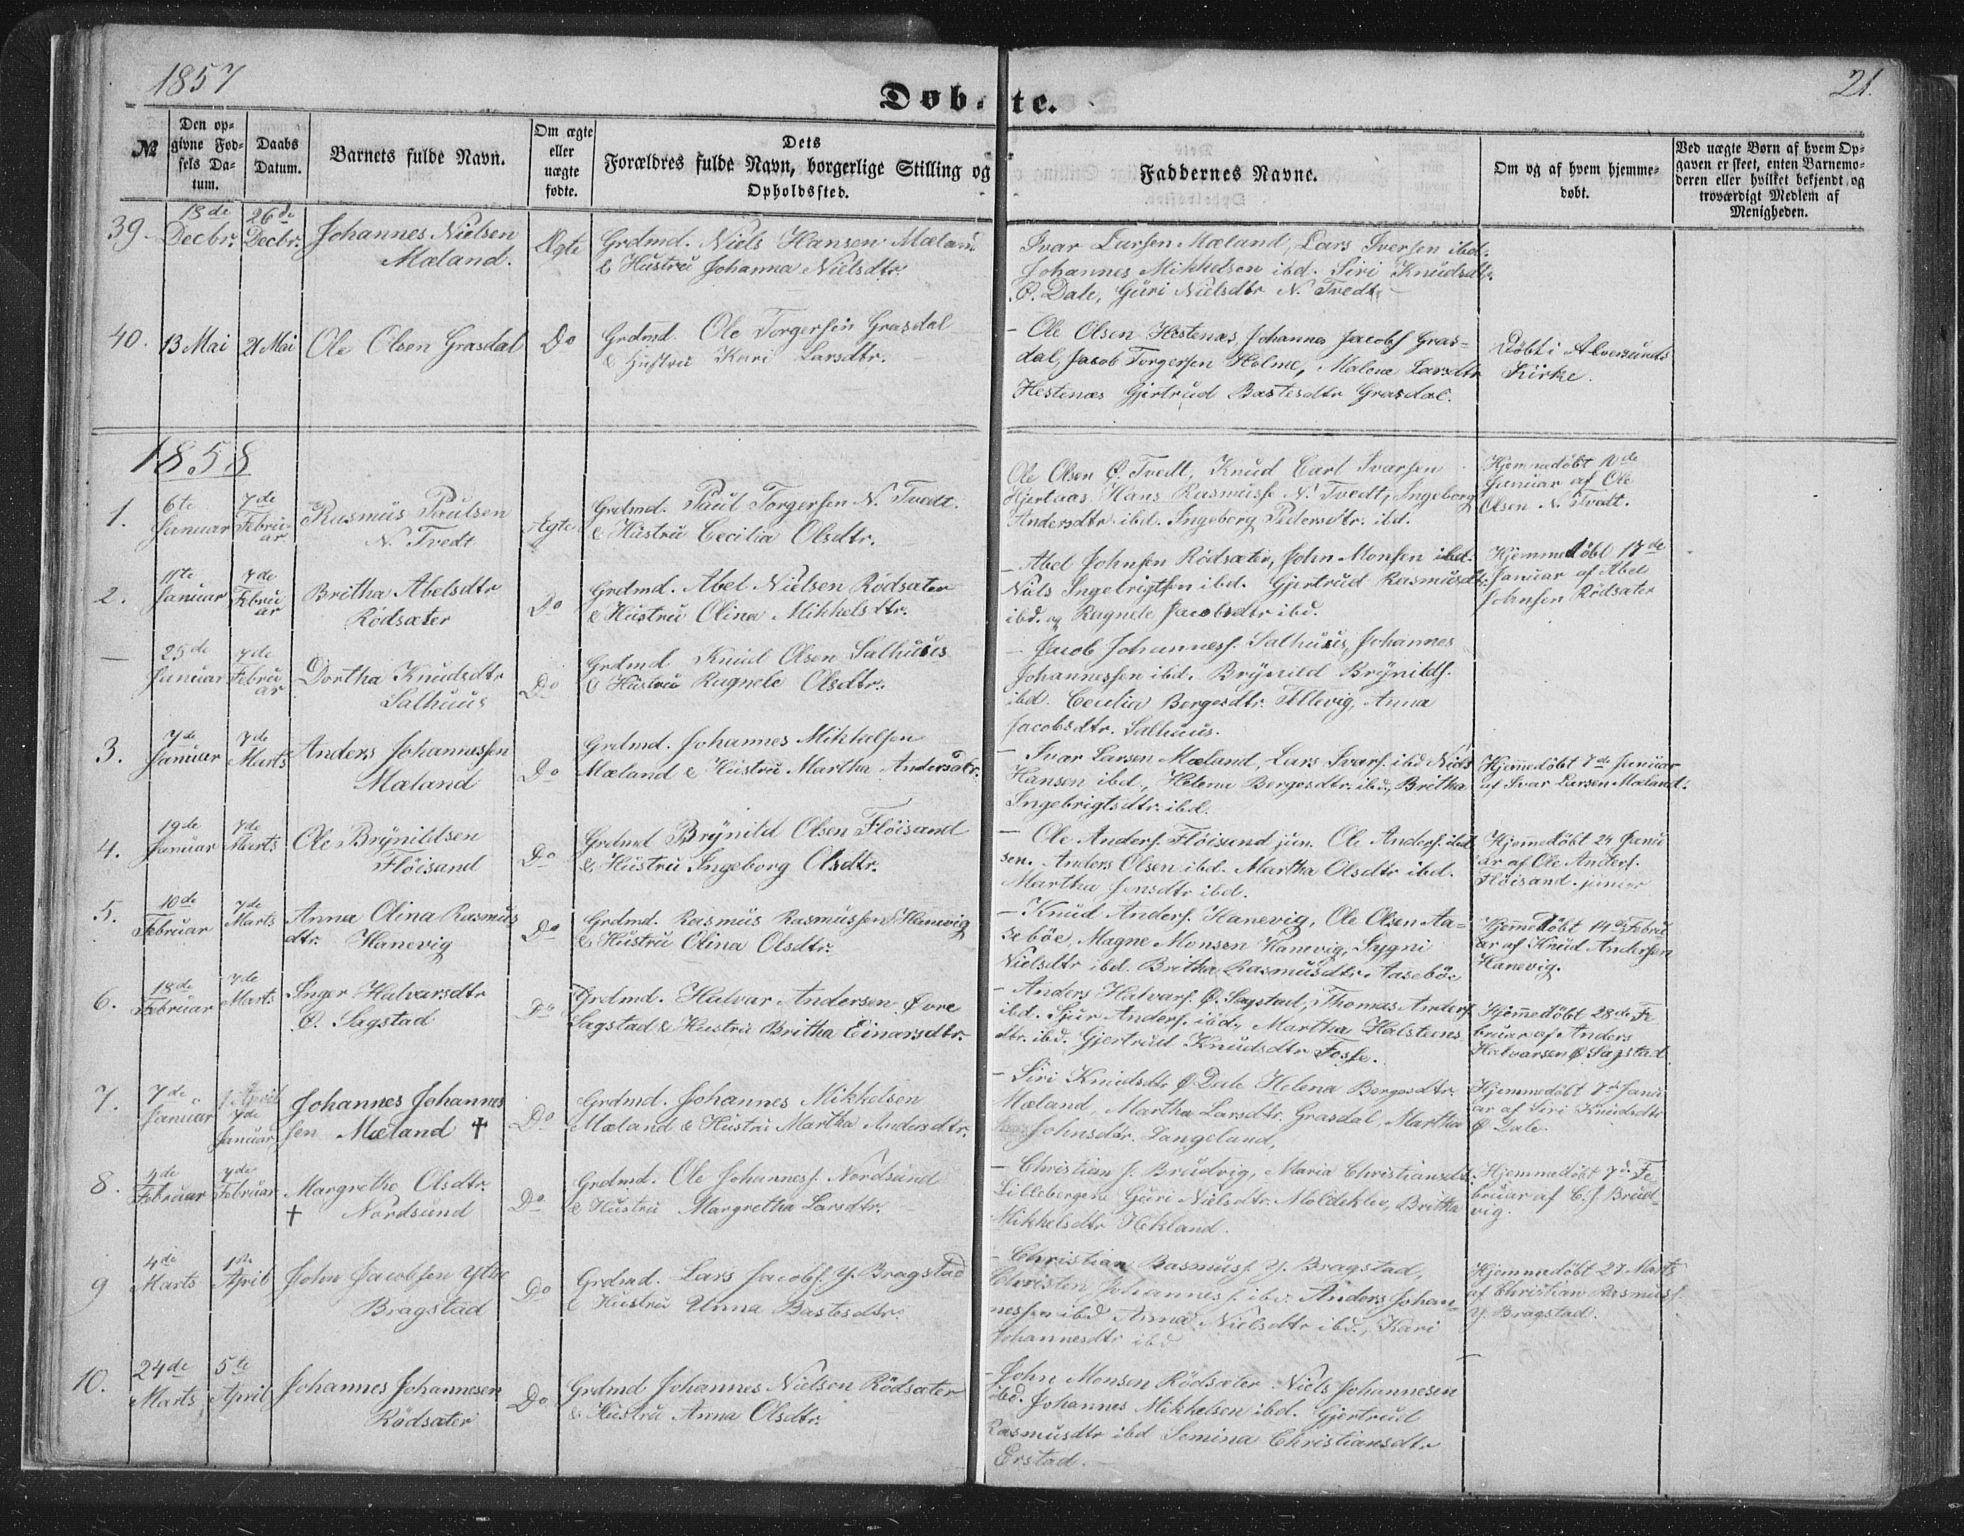 1857
21.
Døbte.
№
Den op-
givne Fod-
sels Da-
tum.
Daabs
Datum.
Barnets fulde Navn.
Om ægte
eller
uægte
fødte.
Dets
Forældres fulde Navn, borgerlige Stilling og
Opholdssted.
Faddernes Navne.
Om og af hvem hjemme-
døbt.
Ved uægte Børn af hvem Op-
gaven er skeet, enten Barnemo-
deren eller hvilket bekjendt og
troværdigt Medlem af
Menigheden.
39.
18de
Decbr.
26de
Decbr.
Johannes Nielsen
Mæland.
Ægte
Grdmd. Niels Hansen Mæland
& Hustru Johanna Nielsdtr.
Ivar Larsen Mæland, Lars Iversen ibd.
Johannes Mikkelsen ibd. Siri Knudsdtr
Ø. Dale, Guri Nielsdtr N. Tvedt,
40.
13 Mai
21 Mai
Ole Olsen Grasdal
Do
Grdmd. Ole Torgersen Grasdal
& Hustru Kari Larsdtr.
- Ole Olsen Hestenæs, Johannes Jacobs Gras-
dal, Jacob Torgersen Holme, Malene Larsdtr
Hestenæs Gjertrud Bastesdtr Grasdal.
Døbt i Alversunds
Kirke.
1858
1.
6te
Januar
7de
Febru
ar
Rasmus Paulsen
N. Tvedt
Ægte
Grdmd. Paul Torgersen N. Tvedt.
& Hustru Cecilia Olsdtr.
Ole Olsen Ø. Tvedt, Knud Carl Ivarsen
Hjertaas, Hans Rasmuss. N. Tvedt, Ingeborg
Andersdtr ibd. Ingeborg Pedersdtr. ibd.
Hjemmedøbt
Januar af Ole
Olsen N. Tvedt.
2.
11te
Januar
7de
Febru
ar
Britha Abelsdtr
Rödsæter
Do
Grdmd. Abel Nielsen Rödsæter
& Hustru Olina Mikkelsdtr.
- Abel Johnsen Rödsæter, John Monsen ibd.
Niels Ingebrigtsen ibd. Gjertrud Rasmusdtr
ibd. og Ragnele Jacobsdtr ibd.
Hjemmedøbt 17de
Januar af Abel
Johnsen Rödsæter
-
25de
Januar
7de
Febru
ar
Dortha Knudsdtr
Salhuus
Do
Grdmd. Knud Olsen Salhuus
& Hustru Ragnele Olsdtr.
- Jacob Johanness. Salhuus, Johannes
Johannessen ibd. Brynild Brynilds.
ibd. Cecilia Bergesdtr. Tellevig, Anna
Jacobsdtr. Salhuus.
3.
7de
Januar
7de
Marts
Anders Johannessen
Mæland
Do
Grdmd. Johannes Mikkelsen
Mæland & Hustru Martha Andersdtr.
- Ivar Larsen Mæland, Lars Ivars. ibd Niels
Hansen ibd, Helene Bergesdtr. ibd., Britha
Ingebrigtsdtr. ibd.
Hjemedøbt 7de Januar
af Ivar Larsen Mæland.
4.
19de
Januar
7de
Marts
Ole Brynildsen
Flöisand
Do
Grdmd Brynild Olsen Flöisand
& Hustru Ingeborg Olsdtr.
- Ole Anders. Flöisand jun. Ole Anders. ibd
sen. Anders Olsen ibd. Martha Olsdtr ibd.
Martha Jensdtr ibd.
Hjemedøbt 24 Janu
ar af Ole Anders.
Flöisand. junior
5.
10de
Februar
7de
Marts
Anna Olina Rasmus
dtr. Hanevig
Do
Grdmd. Rasmus Rasmussen Hanevig
& Hustru Olina Olsdtr.
- Knud Anders. Hanevig, Ole Olsen Aa-
seböe, Magne Monsen Hanevig, Sygni
Nielsdtr ibd. Britha Rasmusdtr. Aaseböe
Hjemedøbt 14de Febru
ar af Knud Andersen
Hanevig.
6.
18de
Februar
7de
Marts
Inger Halvarsdtr
Ø. Sagstad
Do
Grdmd. Halvar Andersen Øvre
Sagstad & Hustru Britha Einarsdtr.
- Anders Halvars. Ø. Sagstad, Thomas Anders.
ibd. Sjur Anders. ibd, Martha Halsteens
dtr. ibd. Gjertrud Knudsdtr Fosse.
Hjemedøbt 28de Fe
bruar af Anders
Halvarsen Ø Sagstad
7.
7de
Januar
7de
Januar
Johannes Johannes
sen Mæland †
Do
Grdmd. Johannes Mikkelsen
Mæland & Hustru Martha Andersdtr.
- Siri Knudsdtr Ø Dale Helena Bergesdtr.
Mæland, Martha Larsdtr. Grasdal, Martha
Johnsdtr. Langeland,
Hjemmedøbt 7de Janu
ar af Siri Knudsdtr
Ø Dale.
8.
4de
Februar
7de
Februar
Margrethe Olsdtr.
† Nordsund
Do
Grdmd. Ole Johanness. Nordsund
& Hustru Margretha Larsdtr.
- Christian J. Brudvig, Maria Christiansdtr.
Lillebergen Guri Nielsdtr. Moldeklev, Britha
Mikkelsdtr Hekland.
Hjemmedøbt 7de Fe
bruar af C. J. Brud-
vig.
9
4de
Marts
1ste
April
John Jacobsen Ytre
Bragstad
Do
Grdmd. Lars Jacobs. Y. Bragstad
& Hustru Anna Bastesdtr.
- Christian Rasmuss. Y. Bragstad,
Christen Johanness ibd. Anders Johan-
nessen ibd Anna Nielsdtr ibd., Kari
Johannesdtr ibd
Hjemmedøbt 27 Marts
af Christian Rasmuss.
Y. Bragstad.
10.
24de
Marts
5te
April
Johannes Johannesen
Rödsæter
Do
Grdmd Johannes Nielsen Rödsæter
& Hustru Anna Olsdtr.
- John Monsen Rödsæter Niels Johannesen
ibd. Johannes Mikkelsen ibd. Gjertrud
Rasmusdtr ibd Semina Christiansdtr
Erstad.